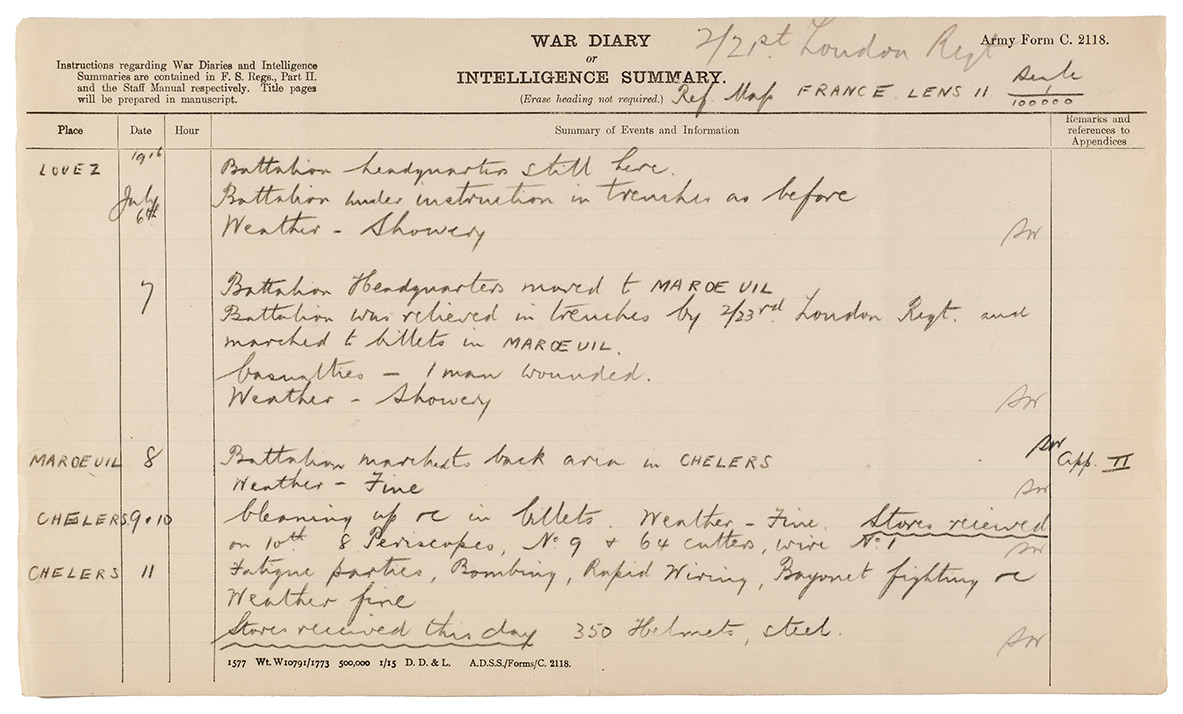 WAR DIARY
or
INTELLIGENCE SUMMARY.
(Erase heading not required.)
2/21st. London Regt
Army Form C. 2118.
Instructions regarding War Diaries and Intelligence
Summaries are contained in F. S. Regs., Part II.
and the Staff Manual respectively. Title pages
will be prepared in manuscript.
Ref Map FRANCE. LENS 11 Scale 1/100000
Place Date Hour Summary of Events and Information Remarks and references to Appendices
LOUEZ 1916 Battalion headquarters still here.
July 6th Battalion under instruction in trenches as before
Weather - Showery
7 Battalion Headquarters moved to MAROEUIL
Battalion was relieved in trenches by 2/23rd. London Regt. and
marched to billets in MAROEUIL.
Casualties - 1 man wounded.
Weather - Showery
MAROEUIL 8 Battalion marched to back area in CHELERS App. II
Weather - Fine
CHELERS 9 & 10 Cleaning up &c in billets. Weather - Fine. Stores received
on 10th 8 Periscopes, No 9 & 64 cutters, wire No 1
CHELERS 11 Fatigue parties, Bombing, Rapid Wiring, Bayonet fighting &c
Weather fine
Stores received this day 350 Helmets, steel.
1577 Wt. W10791/1773 500,000 1/15 D. D. & L. A.D.S.S./Forms/C. 2118.